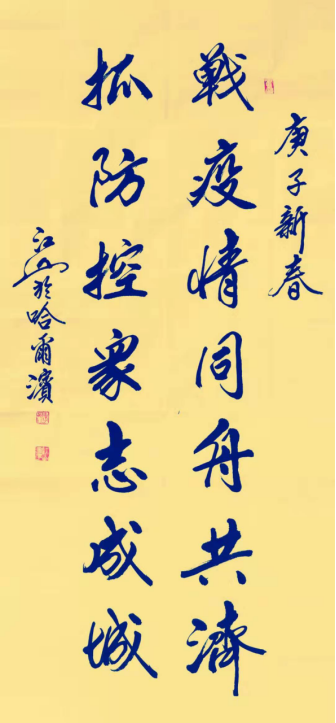 庚子新春
戰疫情同舟共濟
抓防控眾志成城
於哈爾濱